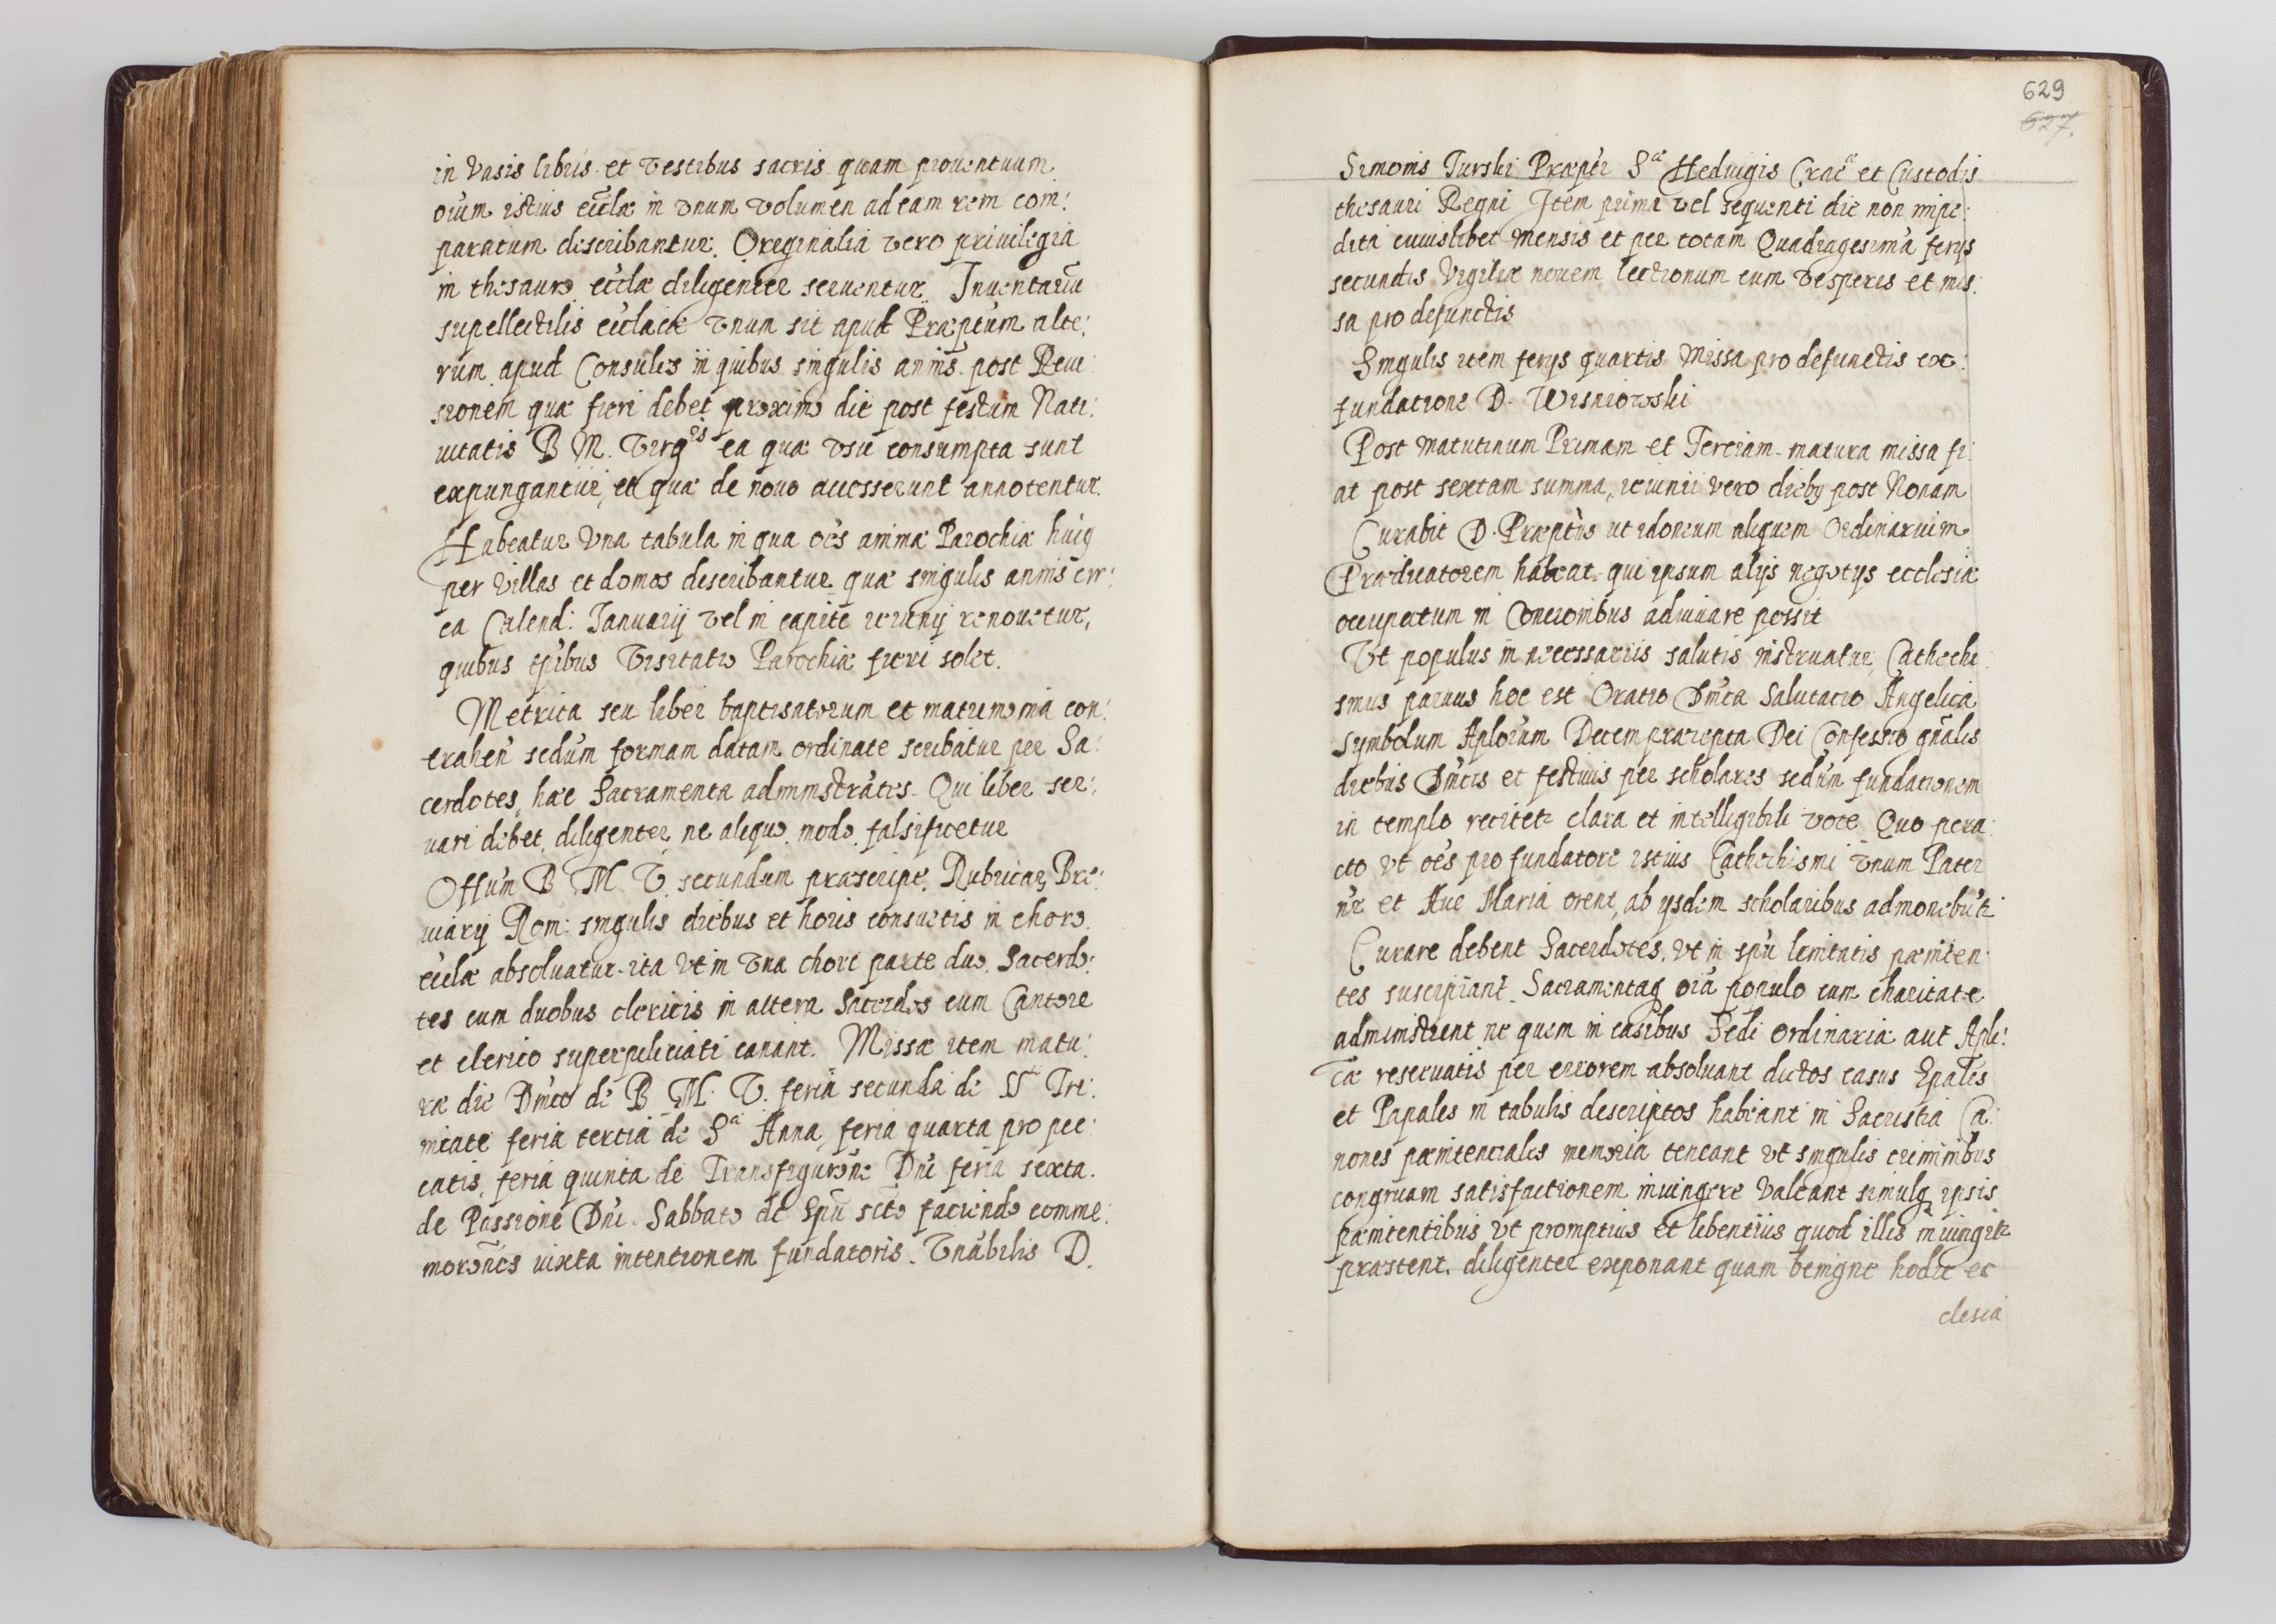 in Vasis libris et vestibus sacris quam prouentuum
oium istius eccłæ in vnum volumen ad eam rem com:
paratum describantur. Originalia vero priuilegia
in thesauro eccłæ diligenter seruentur. Inuentariũ
supellectilis eccłacæ vnum sit apud Præptũm alte:
rum apud Consules in quibus singulis annis post Reui:
sionem quæ fieri debet proximo die post festum Nati:
uitatis B M. Virgis ea quæ vsu consumpta sunt
expungantur, et quæ de nouo accesserunt annotentur.
Habeatur Vna tabula in qua oēs animæ Parochiæ huiꝰ
per Villas et domos describantur quæ singulis annis cir:
ca Calend: Januarij vel in capite ieiunij renouetur,
quibus tp̄ibus Visitatio Parochiæ fieri solet.
Metrica seu liber baptisatorum et matrimonia con:
trahen̄ sedūm formam datam ordinate scribatur per Sa:
cerdotes, hæc Sacramenta administrātes. Qui liber ser:
uari debet, diligenter, ne aliquo modo falsificetur
Offūm B M V secundum præscript. Rubricarꝫ Bre:
uiarij Rom: singulis diebus et horis consuetis in choro
eccłæ absoluatur. ita vt in vna chori parte duo Sacerdo:
tes cum duobus clericis in altera Sacerdos cum Cantore
et clerico superpeliciati canant. Missæ item matu:
ræ die Dm̄co de B M. V. feria secunda de SS Tri:
nitate feria tertia de Sa Anna, feria quarta pro pec:
catis, feria quinta de Transfiguroñe Dn̄i feria sexta
de Passione Dn̄i. Sabbato de Spū scto faciendo comme:
moroñes iuxta intentionem fundatoris. Vnābilis D.
629
627.
Simonis Turski Præpti Sæ Heduigis Cracæ et Custodis
thesauri Regni Item prima vel sequenti die non impe:
dita cuiuslibet mensis et per totam Quadragesimā ferijs
secundis Vigiliæ nouem lectionum cum vesperis et mis:
sa pro defunctis
Singulis item ferijs quartis Missa pro defunctis ex:
fundatione D. Wisniowski
Post matutinum Primam et Tertiam matura missa fi:
at post sextam summa, ieiunii vero diebꝰ post Nonam
Curabit D. Præptūs ut idoneum aliquem Ordinarium
Prædicatorem habeat qui ipsum alijs negotijs ecclesiæ
occupatum in Concionibus adiuuare possit
Vt populus in necessariis salutis instruatur, Cathechi
smus paruus hoc est Oratio Dm̄ca Salutatio Angelica
symbolum Aplorum Decem præcepta Dei Confessio gnālis
diebus Dm̄cis et festiuis per scholares sedūm fundationem
in templo recitetꝛ clara et intelligibili voce Quo pera:
cto vt oēs pro fundatore istius Cathechismi vnum Pater
nr̄ et Aue Maria orent, ab ysdem scholaribus admonebūtꝛ
Curare debent Sacerdotes, vt in spū lenitatis pœniten:
tes suscipiant. Sacramentaqꝫ oīa populo cum charitate
administrent ne quem in casibus Sedi ordinariæ aut Apli:
cæ reseruatis per errorem absoluant dictos casus Epales
et Papales in tabulis descriptos habeant in Sacristia Ca:
nones pœnitenciales memoria teneant vt singulis criminibus
congruam satisfactionem iniungere Valeant simulqꝫ ipsis
pœnitentibus vt promptius et libentius quod illis iniungitꝛ
præstent. diligenter exponant quam benigne hodie ec
clesia